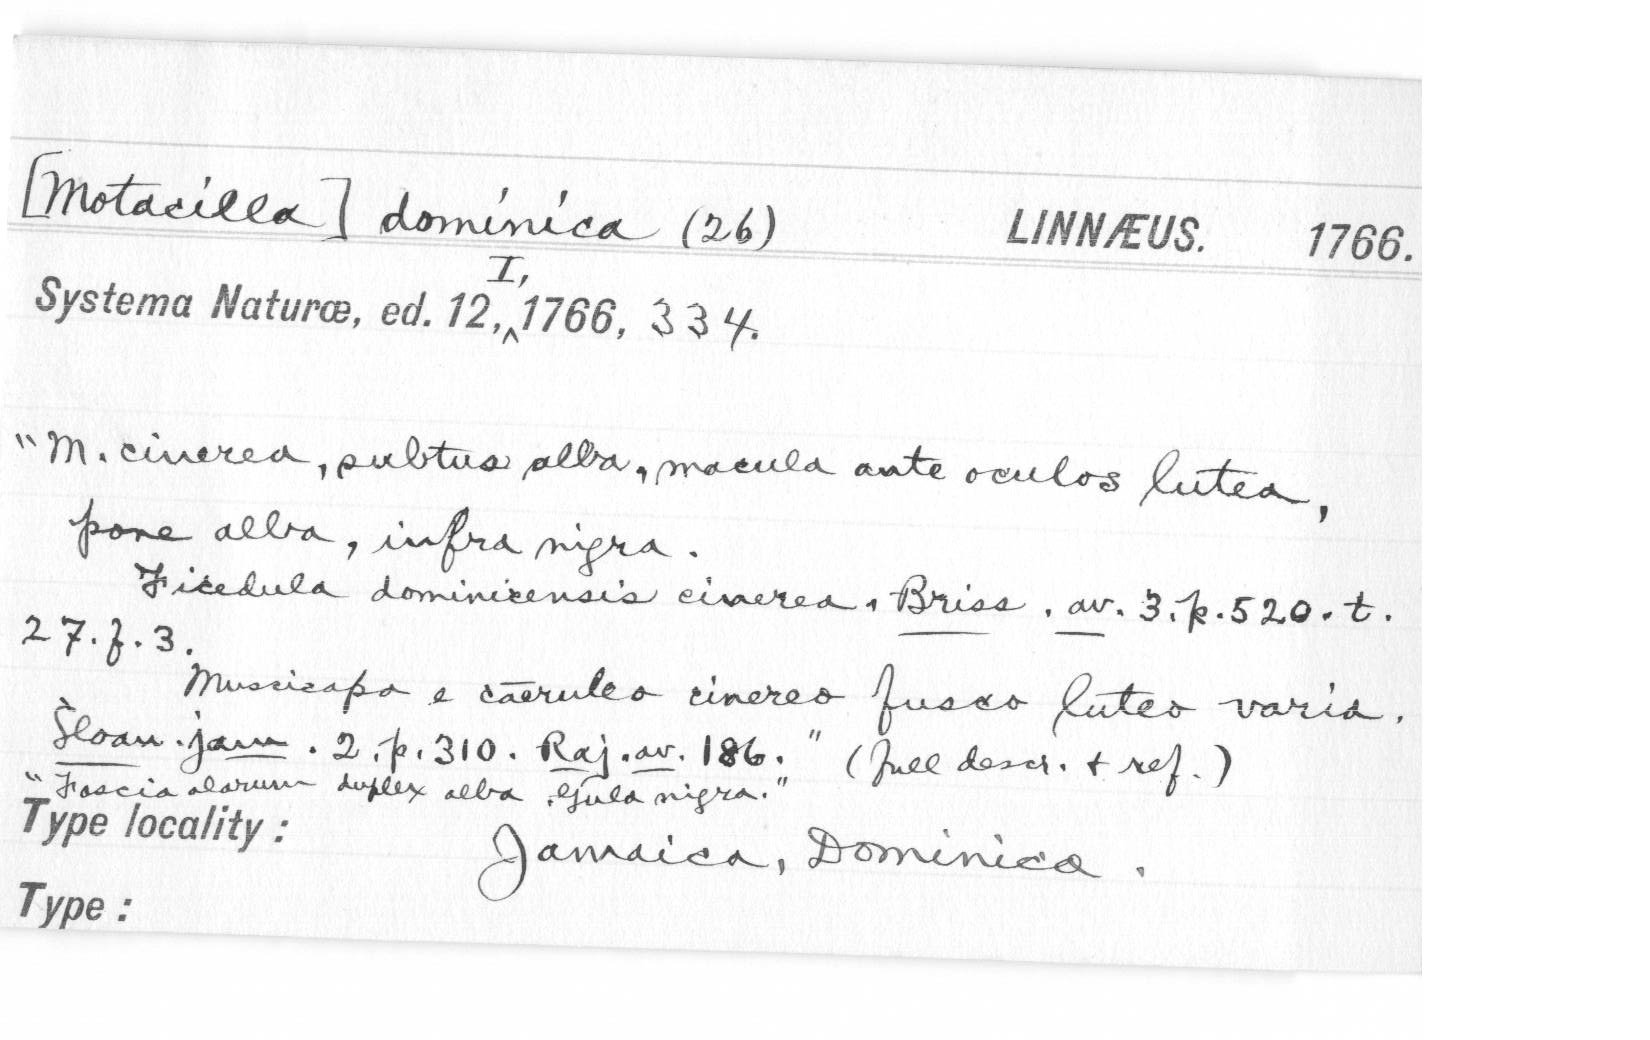 [Motacilla] dominica (26) LINNÆUS. 1766.
Systema Naturæ, ed. 12, I, 1766, 334.
"M. cinerea, subtus alba, macula ante oculos lutea,
pone alba, infra nigra.
Ficedula dominicensis cinerea. Briss. av. 3. p. 520. t.
27. f. 3.
Muscicapa e cæruleo cinereo fusco luteo varia.
Sloan. jam. 2. p. 310. Raj. av. 186." (full descr. + ref.)
"Fascia alarum duplex alba. Gula nigra."
Type locality: Jamaica, Dominica.
Type: